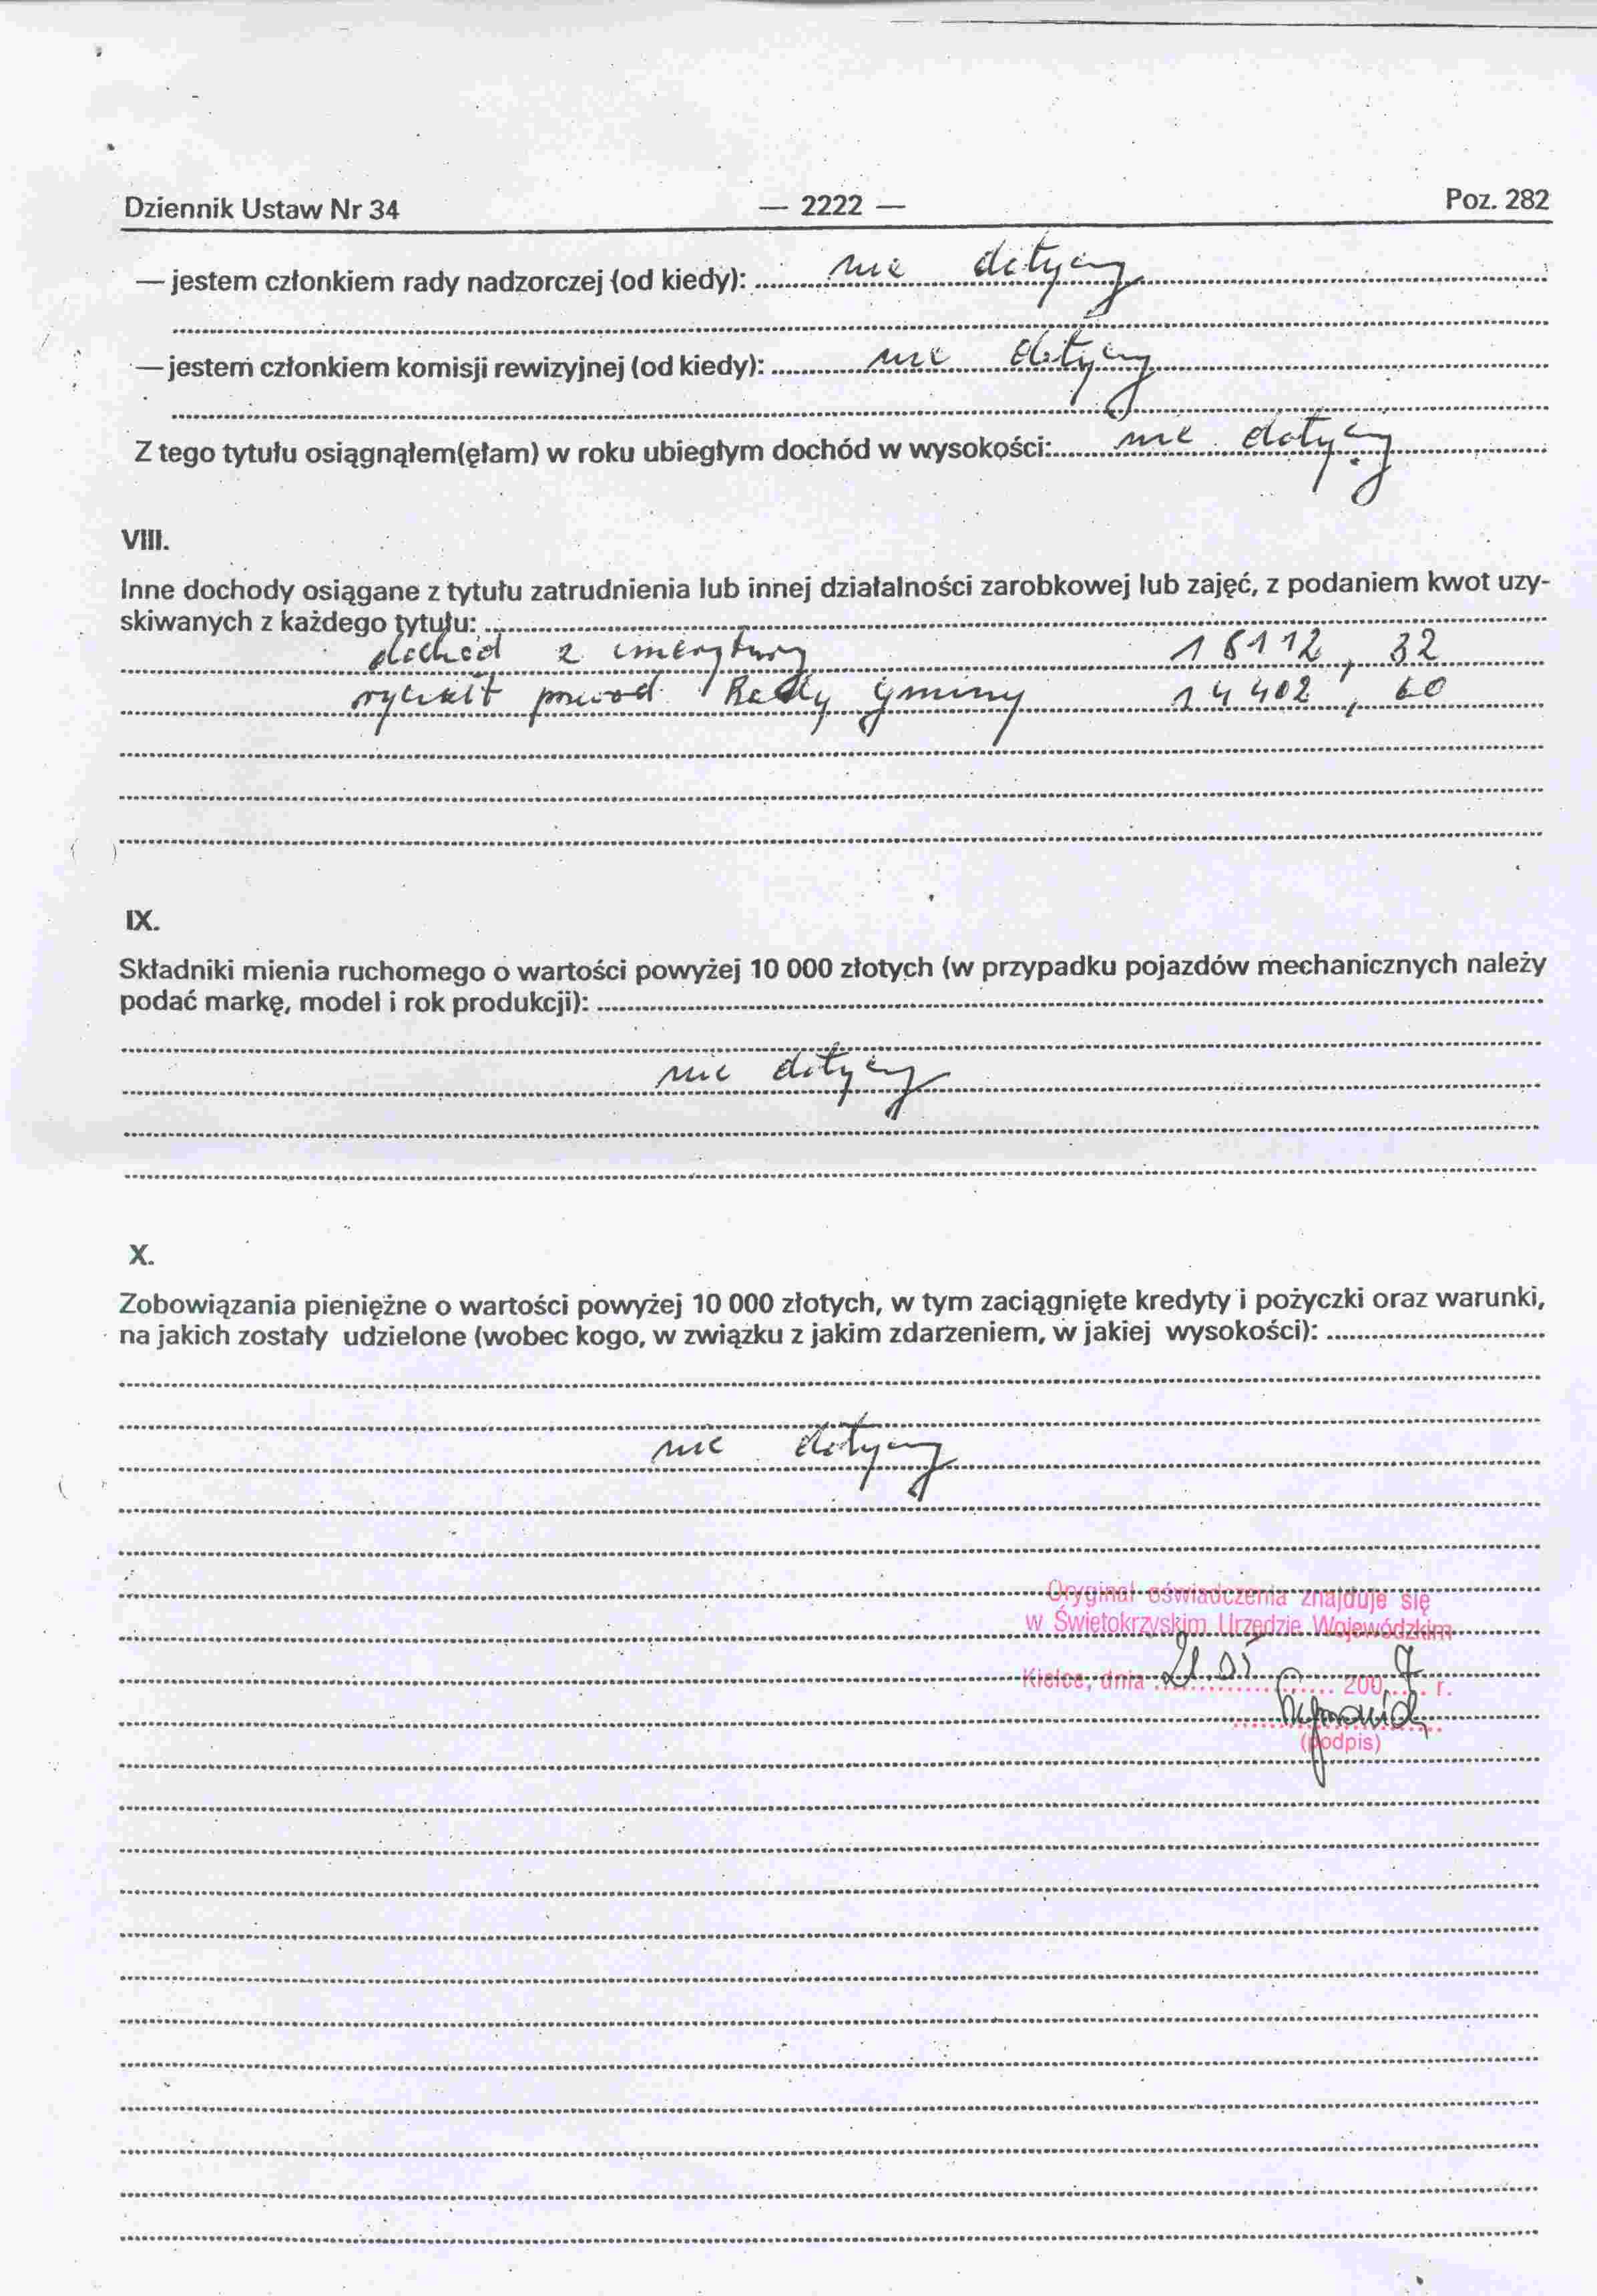 Dziennik Ustaw Nr 34 — 2222 — Poz. 282
— jestem członkiem rady nadzorczej (od kiedy): nie dotyczy
— jestem członkiem komisji rewizyjnej (od kiedy): nie dotyczy
Z tego tytułu osiągnąłem(ęłam) w roku ubiegłym dochód w wysokości: nie dotyczy
VIII.
Inne dochody osiągane z tytułu zatrudnienia lub innej działalności zarobkowej lub zajęć, z podaniem kwot uzy-
skiwanych z każdego tytułu:
dochód z emerytury 18112,32
ryczałt przewod. Rady Gminy 14402,60
IX.
Składniki mienia ruchomego o wartości powyżej 10 000 złotych (w przypadku pojazdów mechanicznych należy
podać markę, model i rok produkcji):
nie dotyczy
X.
Zobowiązania pieniężne o wartości powyżej 10 000 złotych, w tym zaciągnięte kredyty i pożyczki oraz warunki,
na jakich zostały udzielone (wobec kogo, w związku z jakim zdarzeniem, w jakiej wysokości):
nie dotyczy
Oryginał oświadczenia znajduje się
w Świętokrzyskim Urzędzie Wojewódzkim
Kielce, dnia 21.05 2007 r.
(podpis)